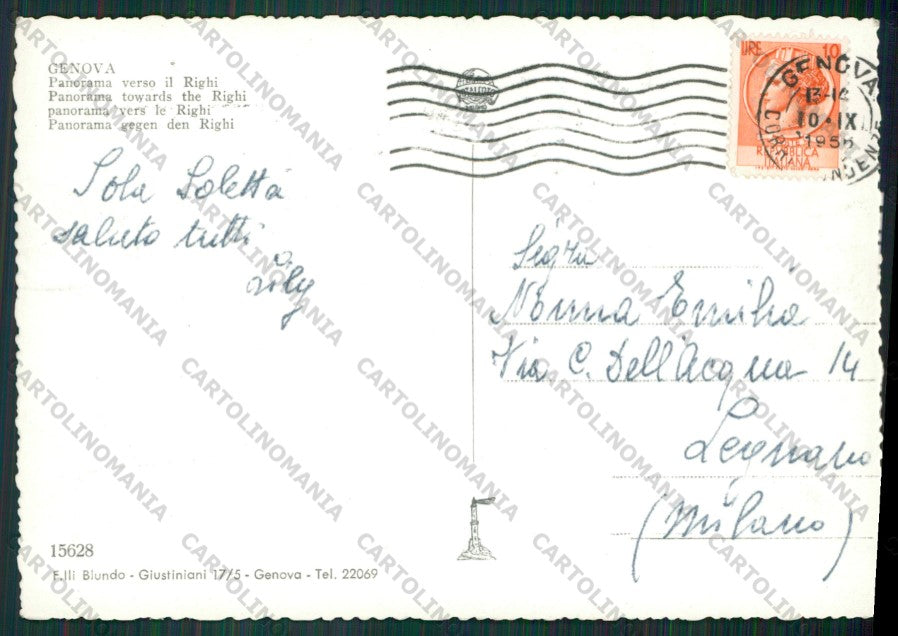 GENOVA
Panorama verso il Righi
Panorama towards the Righi
panorama vers le Righi
Panorama gegen den Righi
Sola Soletta
saluto tutti
Lily
LIRE 10
REPUBBLICA
ITALIANA
GENOVA
10·IX
1956
Sigra
Nonna Emilia
Via C. Dell'Acqua 14
Legnano
(Milano)
15628
F.lli Biundo - Giustiniani 17/5 - Genova - Tel. 22069
CARTOLINOMANIA